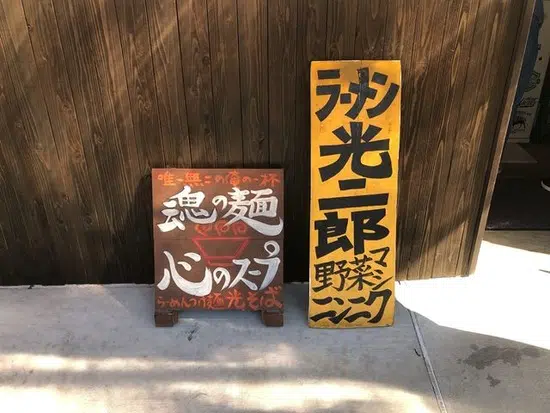 唯一無二の俺の一杯
魂の麺
心のスープ
らーめんつけ麺光そば
ラーメン
光二郎
野菜マシ
ニンニク